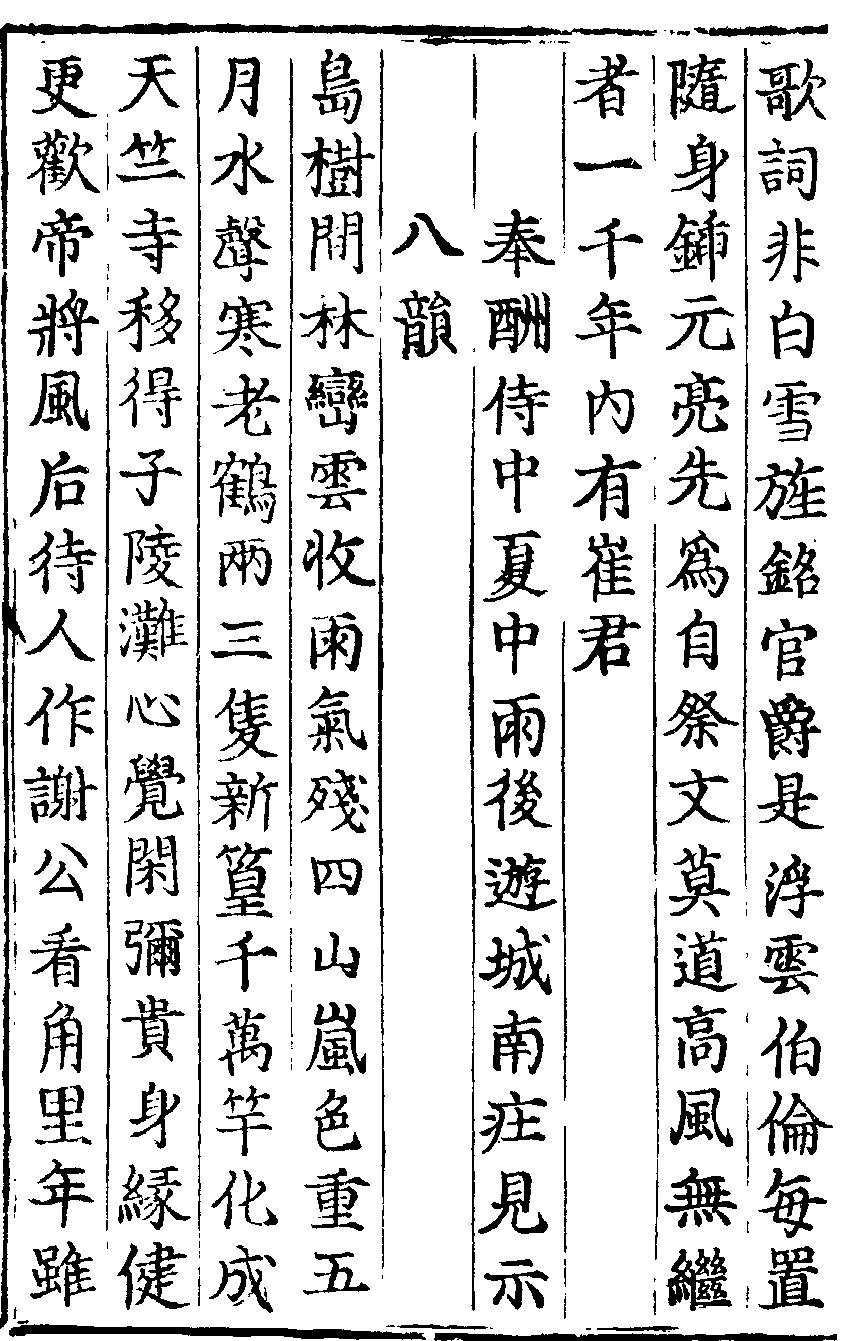 歌詞非白雪旌銘官爵是浮雲伯倫每置
隨身鍤元亮先為自祭文莫道高風無繼
者一千年內有崔君
奉酬侍中夏中雨後遊城南庄見示
八韻
島樹間林巒雲收雨氣殘四山嵐色重五
月水聲寒老鶴兩三隻新篁千萬竿化成
天竺寺移得子陵灘心覺閑彌貴身緣健
更歡帝將風后待人作謝公看角里年雖